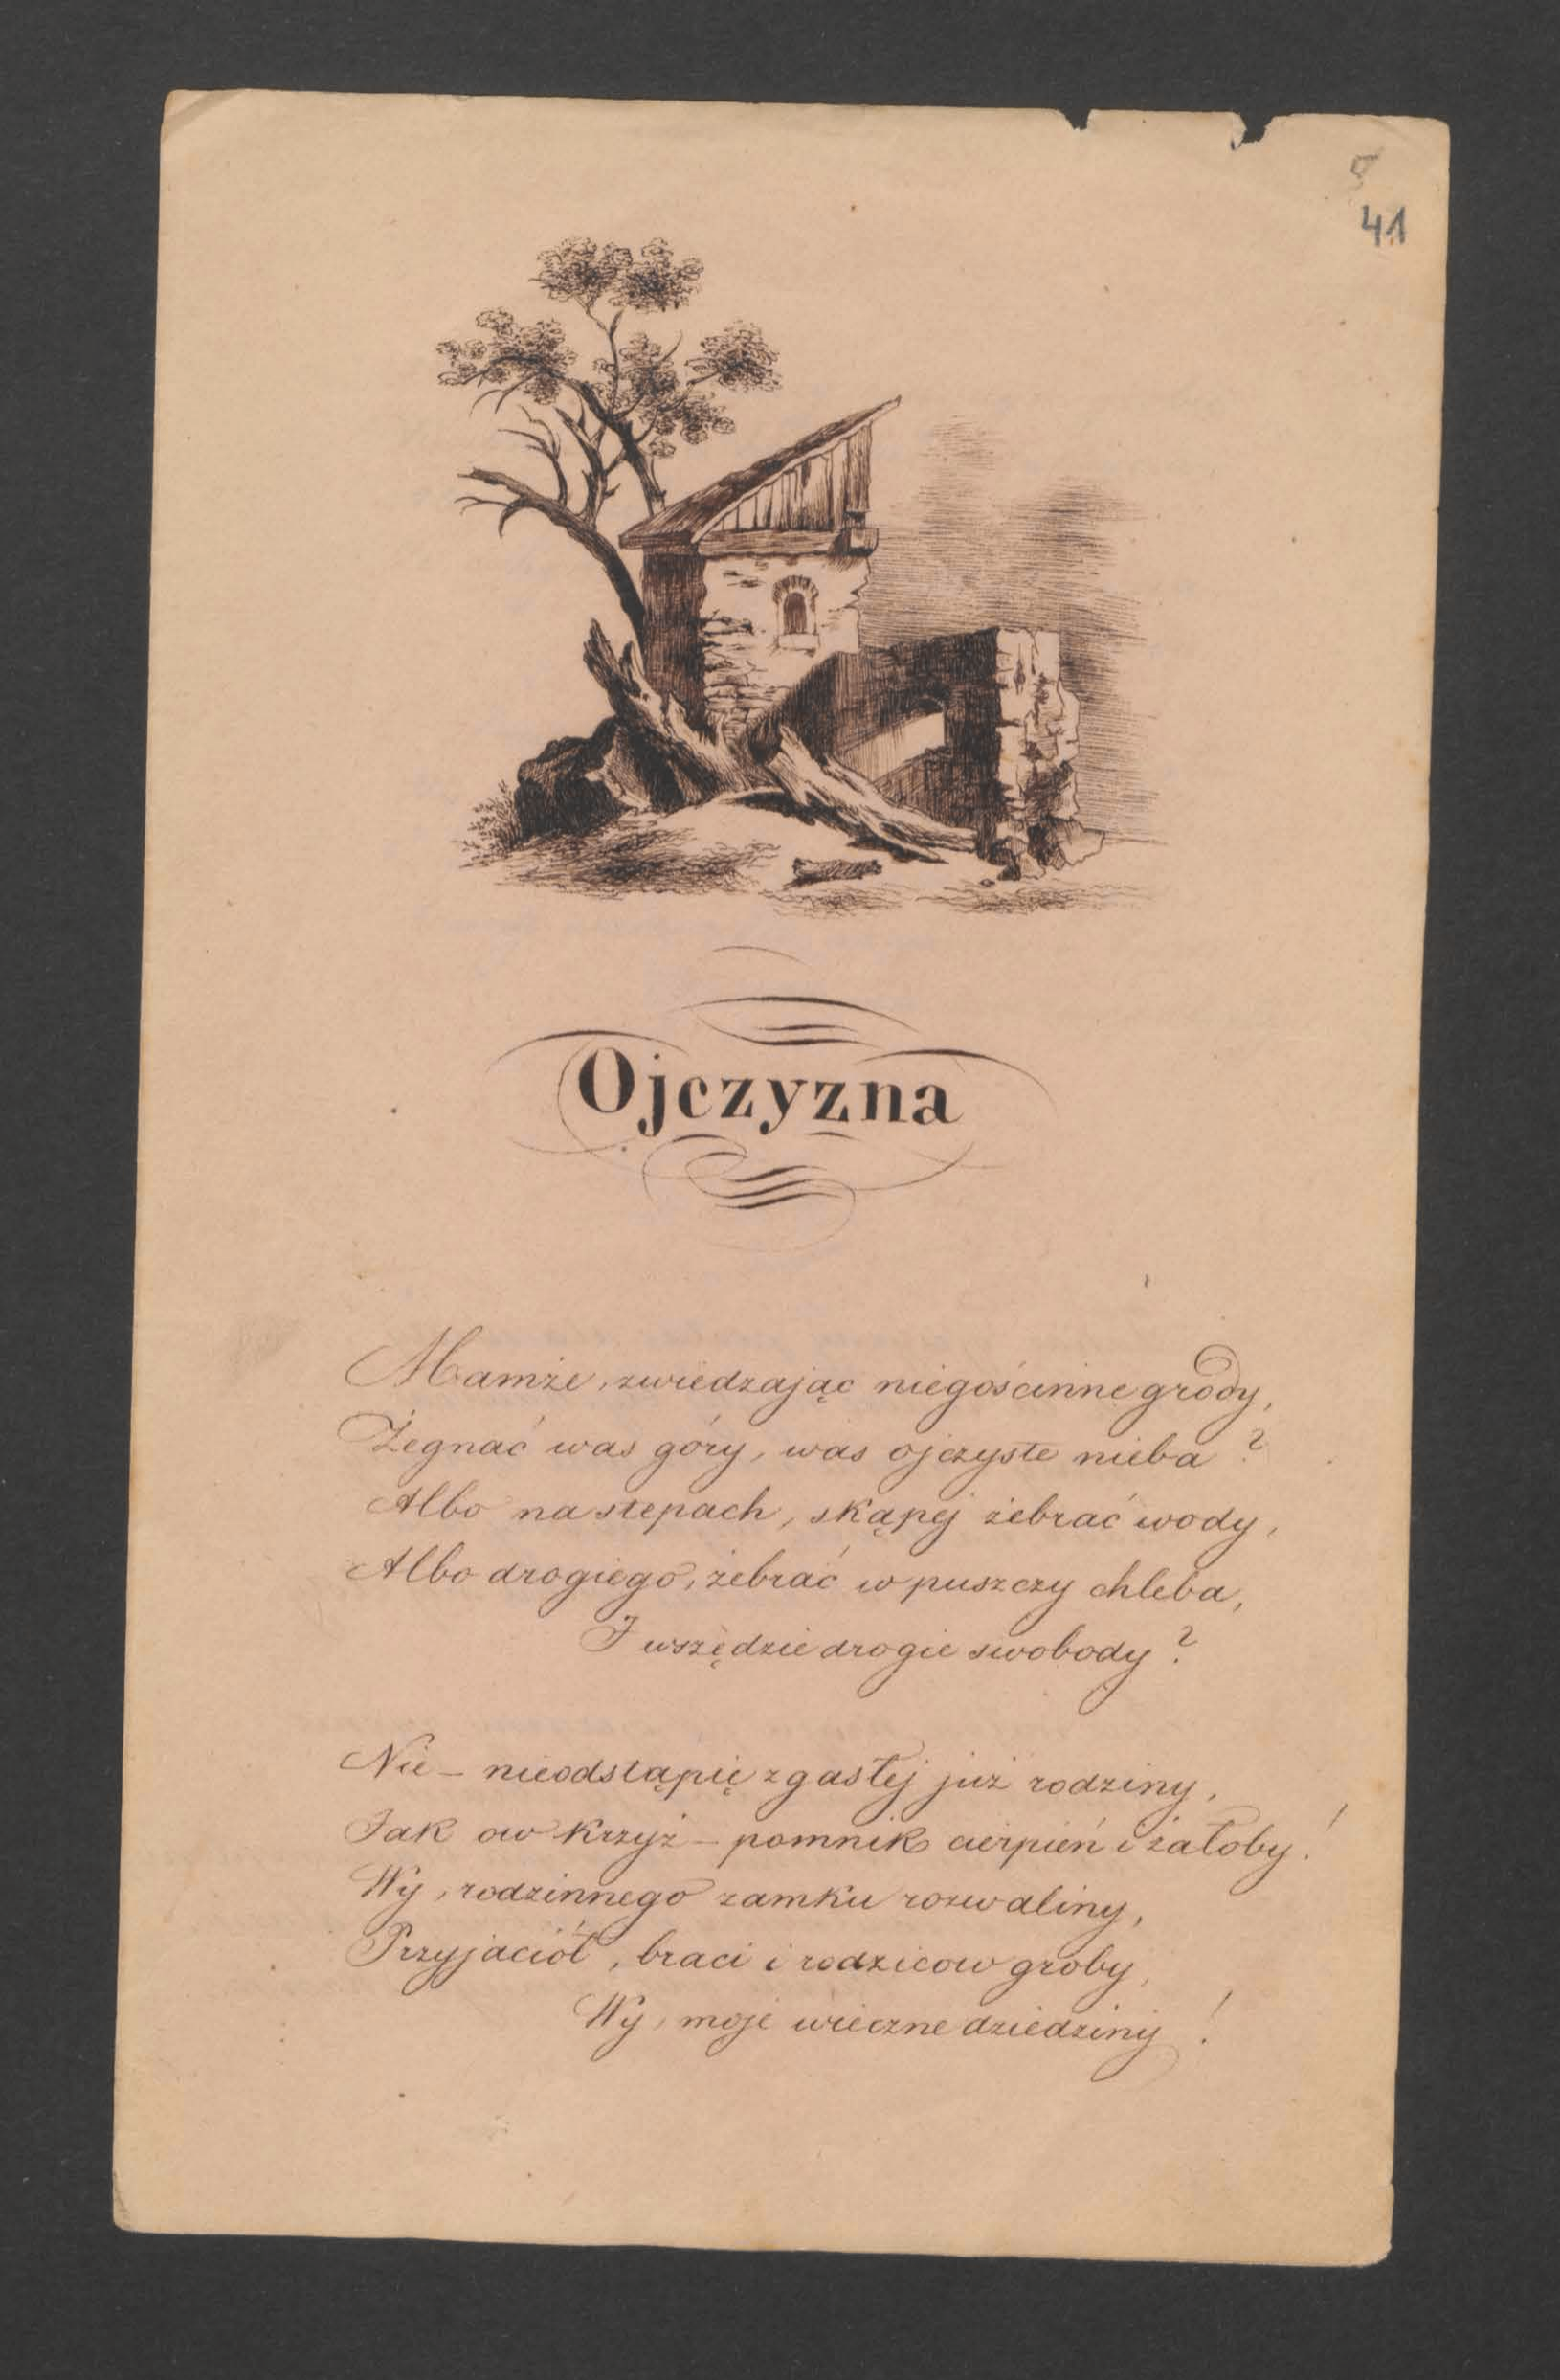 5
41
Ojczyzna
Mamże, zwiedzając niegościnne grody,
Żegnać was góry, was ojczyste nieba?
Albo na stepach, skąpej żebrać wody,
Albo drogiego, żebrać w puszczy chleba,
I wszędzie drogie swobody?
Nie – nieodstąpię zgasłej już rodziny,
Jak ow krzyż – pomnik cierpień i żałoby!
Wy, rodzinnego zamku rozwaliny,
Przyjaciół, braci i rodzicow groby,
Wy, moje wieczne dziedziny!